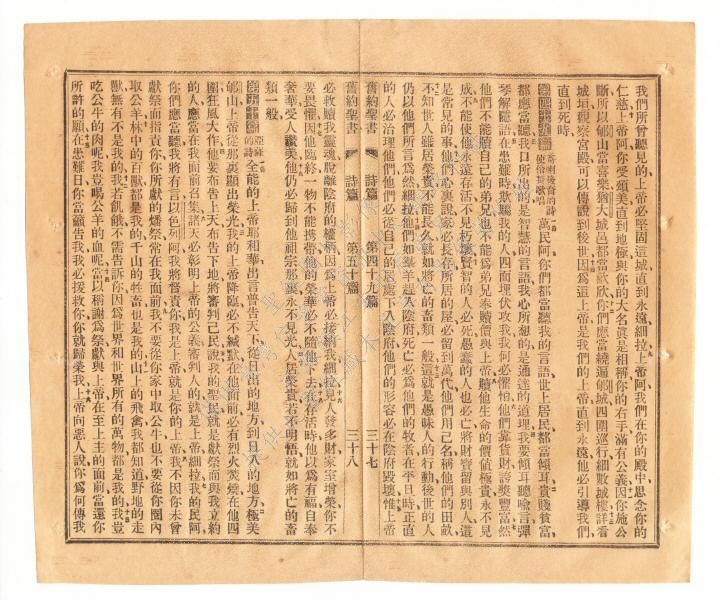 我們所曾聽見的上帝必堅固這城直到永遠細拉上帝阿我們在你的殿中思念你的
仁慈上帝阿你受頌美直到地極與你的大名眞是相稱你的右手滿有公義因你施公
斷所以郇山當喜樂猶大城邑都當歡欣你們應當繞遍郇城四圍巡行細數城樓詳看
城垣觀察宮殿可以傳說到後世因爲這上帝是我們的上帝直到永遠他必引導我們
直到死時
後裔的詩使伶長歌唱 萬民阿你們都當聽我的言語世上居民都當傾耳貴賤貧富
都應當聽我口所出的是智慧的言語我心所想的是通達的道理我要傾耳聽喻言彈
琴解隱語在患難時欺騙我的人四面埋伏攻我我何必懼怕他們靠貲財誇獎豐富然
他們不能贖自己的弟兄也不能爲弟兄奉贖價與上帝贖他生命的價値極貴永不見
成不能使他永遠存活不見朽壞賢智的人必死愚蠢的人也必亡將財寶留與別人這
是常見的事他們心裏說家必長存所居的屋必留到萬代他們用己名稱他們的田畝
不知世人雖居榮貴不能長久就如將亡的畜類一般這就是愚昧人的行動後世的人
仍以他們所言爲然細拉他們如羣羊趕入陰府死亡必爲他們的牧者在平旦時正直
的人必治理他們他們必從自己的居處下入陰府他們的形容必在陰府毀壞惟上帝
舊約聖書 詩篇 第四十九篇 三十七
舊約聖書 詩篇 第五十篇 三十八
必救贖我靈魂脫離陰府的權柄因爲上帝必接納我細拉見人發多財家室增榮你不
要畏懼因他臨終一物不能攜帶他的榮華必不隨他下去我存活時他以爲有福自奉
奢華受人讚美他仍必歸到他祖宗那裏永不見光人居榮貴若不明悟就如將亡的畜
類一般
亞薩的詩 全能的上帝耶和華出言普告天下從日出的地方到日入的地方極美
郇山上帝從那裏顯出榮光我的上帝降臨必不緘默在他面前必有烈火焚燒在他四
圍狂風大作他要布告上天布告下地將審判己民說我的聖民就是獻祭面與我立約
的人應當在我面前召集諸天必彰明上帝的公義審判人的就是上帝細拉我的民阿
你們應當聽我將有言以色列阿我將督責你我是上帝就是你的上帝我不因你未曾
獻祭面指責你你所獻的燔祭常在我面前我不要從你家中取公牛也不要從你圈內
取公羊林中的百獸都是我的千山的牲畜也是我的山上的飛禽我都知道野地的走
獸無有不是我的我若飢餓不需告訴你因爲世界和世界所有的萬物都是我的我豈
吃公牛的肉呢我豈喝公羊的血呢當以稱謝爲祭獻與上帝在至上主的面前當還你
所許的願在患難日你當籲告我我必援救你你就歸榮我上帝向惡人說你爲何傳我